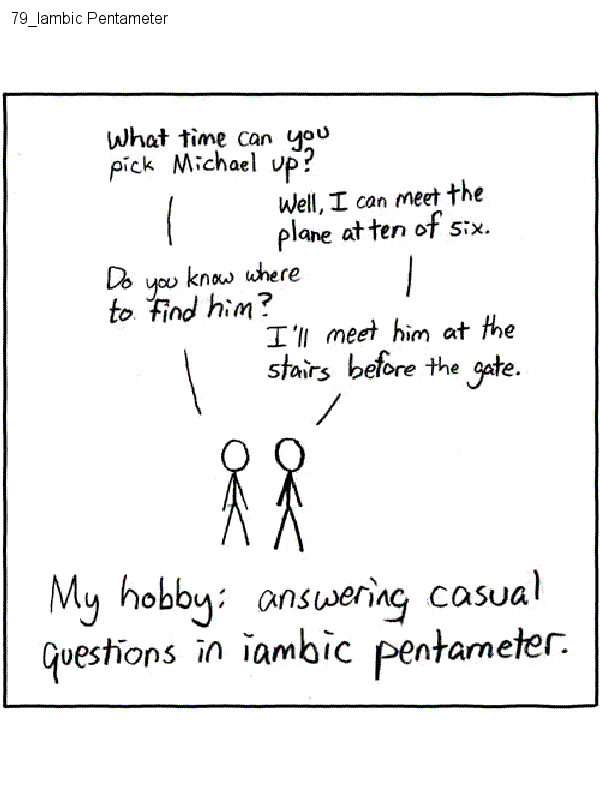 79_Iambic Pentameter
What time can you
pick Michael up?
Well, I can meet the
plane at ten of six.
Do you know where
to find him?
I'll meet him at the
stairs before the gate.
My hobby: answering casual
questions in iambic pentameter.